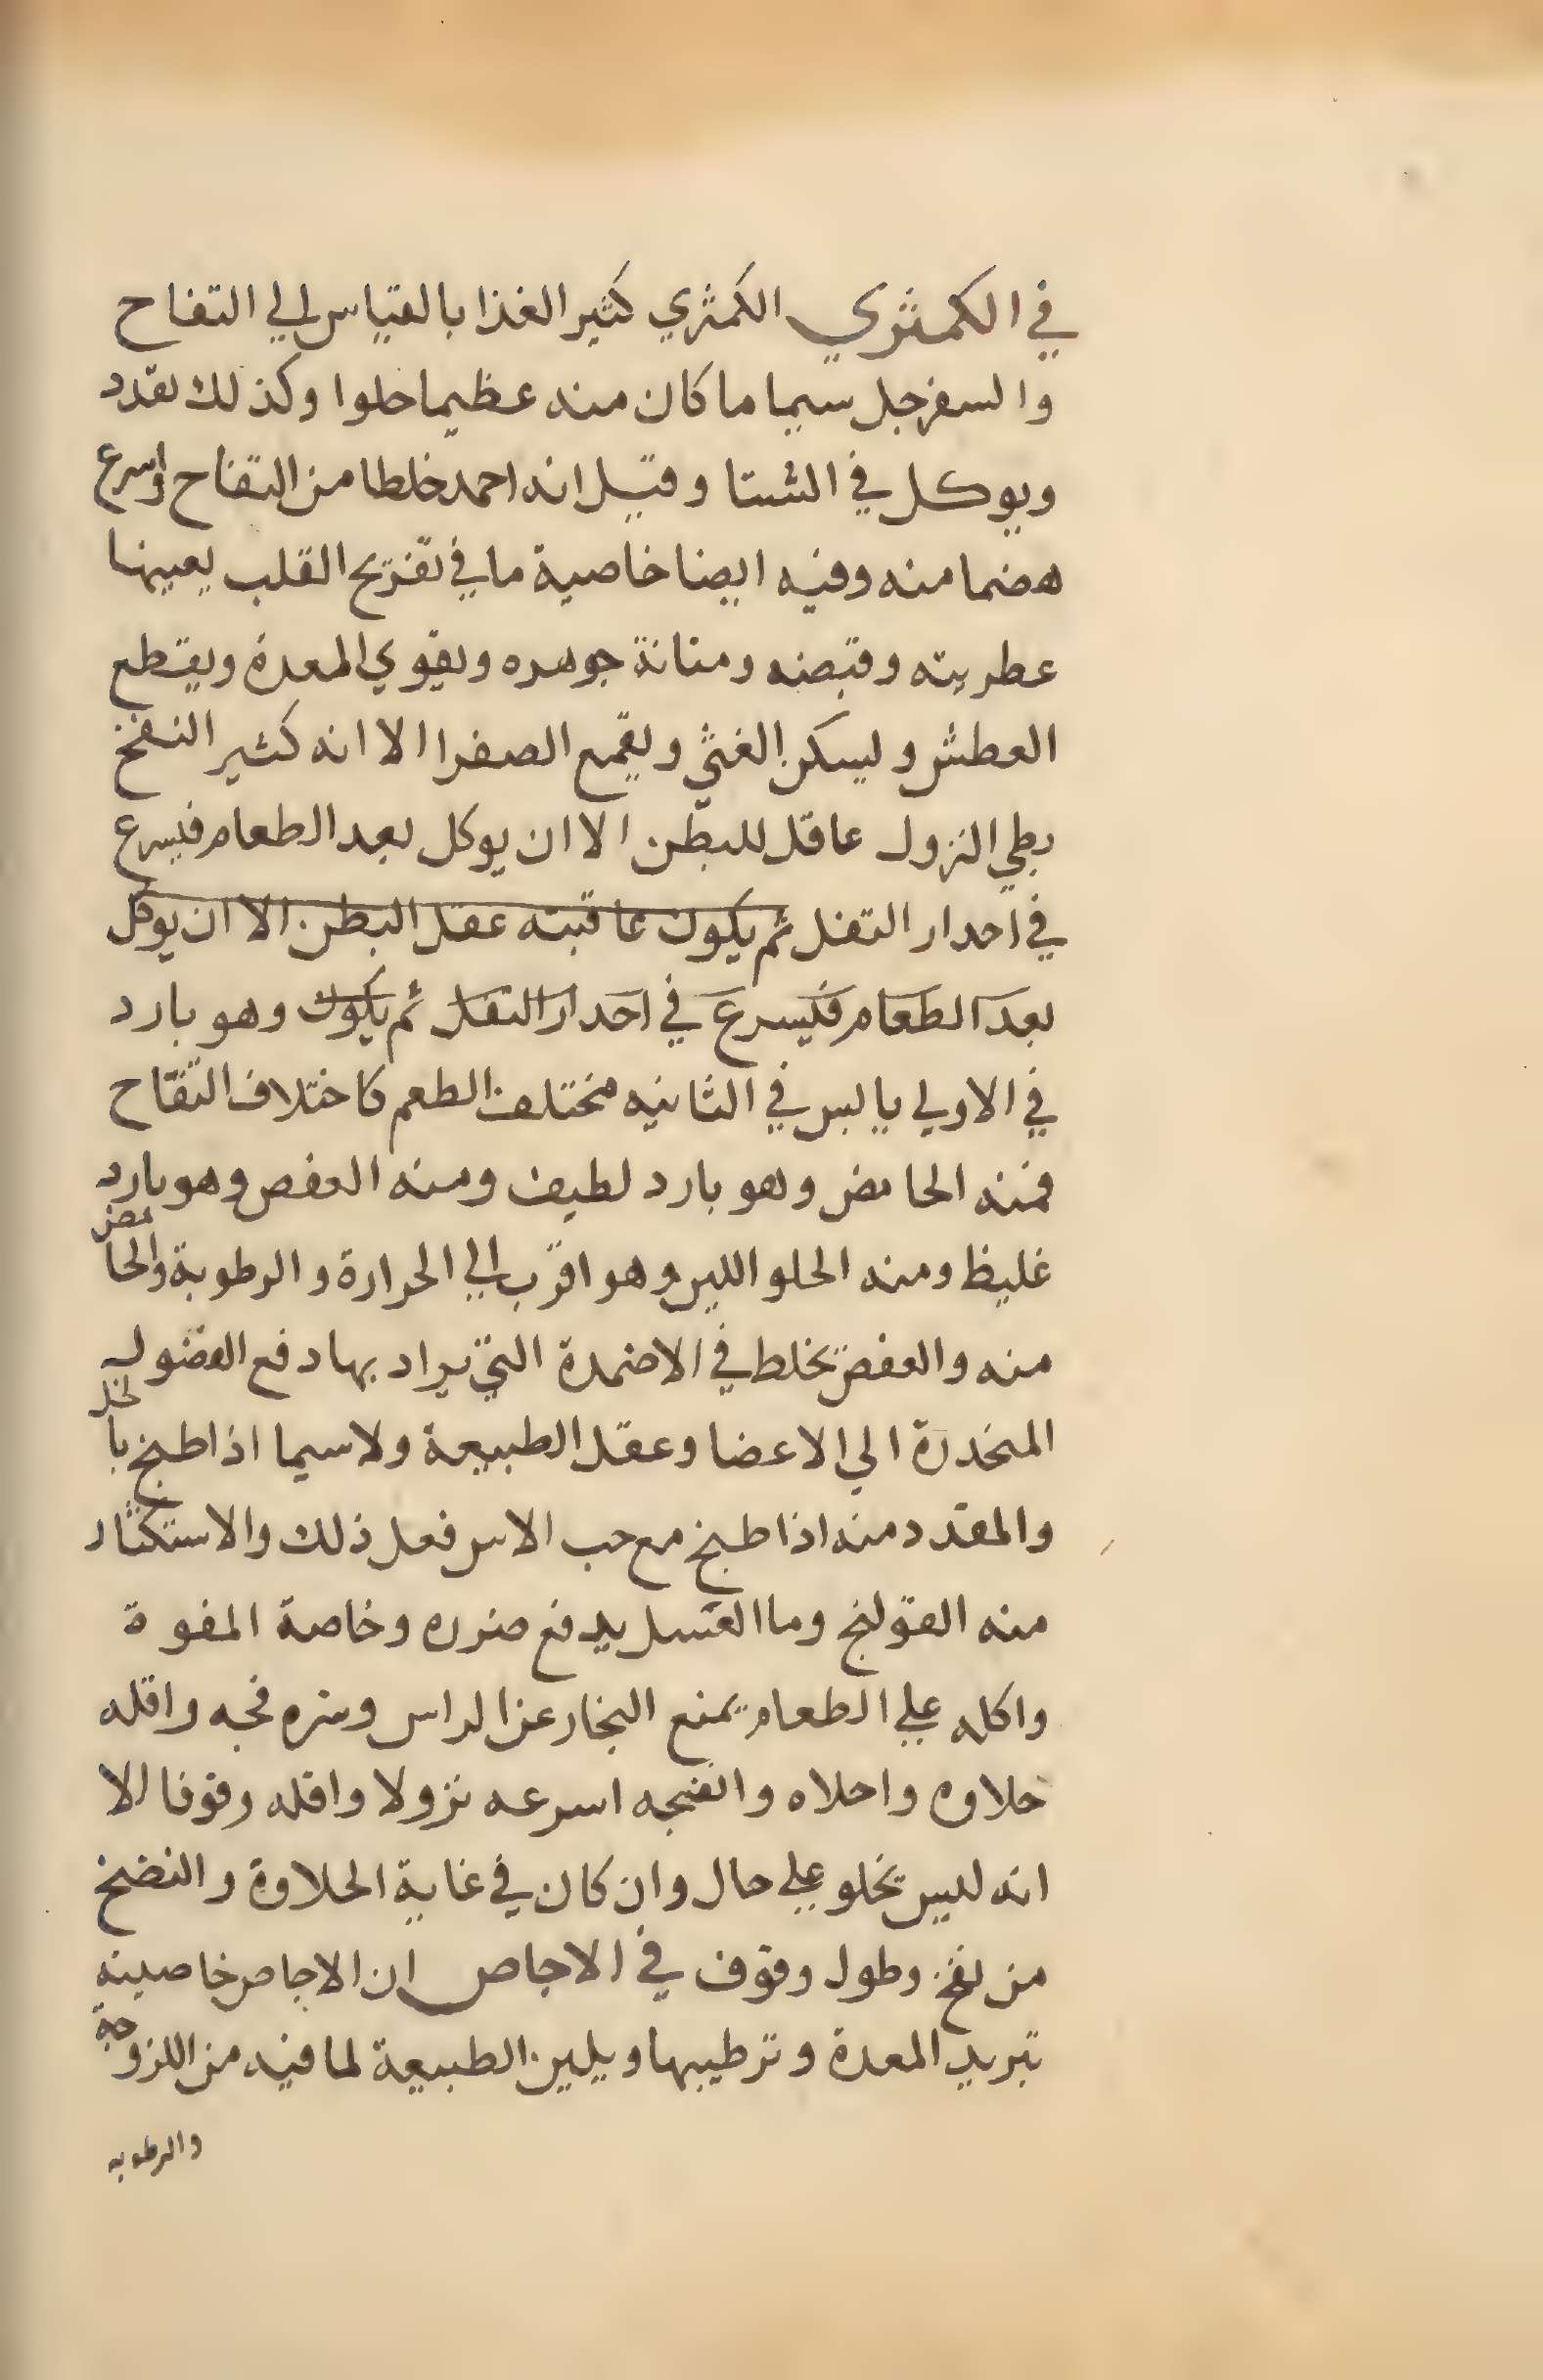 في الكمثري الكمثري كثير الغذا بالقياس الي التفاح
والسفرجل سيما ما كان منه عظيما حلوا وكذلك يقدد
ويوكل في الشتا وقيل انه احمد خلطا من التفاح واسرع
هضما منه وفيه ايضا خاصية ما في تفريح القلب يعينها
عطريته وقبضه ومتانة جوهره ويقوي المعدة ويقطع
العطش ويسكن الغثي ويقمع الصفرا الا انه كثير النفخ
بطي النزول عاقل للبطن الا ان يوكل بعد الطعام فيسرع
في احدار الثفل ثم يكون عاقبته عقل البطن الا ان يوكل
بعد الطعام فيسرع في احدار الثفل ثم يكون وهو بارد
في الاولي يابس في الثانيه مختلف الطعم كاختلاف التفاح
فمنه الحامض وهو بارد لطيف ومنه العفص وهو بارد
غليظ ومنه الحلو اللين وهو اقرب الي الحرارة والرطوبة والحامض
منه والعفص يخلط في الاضمدة التي يراد بها دفع الفضول
المنحدرة الي الاعضا وعقل الطبيعة ولا سيما اذا طبخ بالخل
والمقدد منه اذا طبخ مع حب الاس فعل ذلك والاستكثار
منه القولنج وما العسل يدفع ضرره وخاصة المفوة
واكله علي الطعام يمنع البخار عن الراس وشره فجه واقله
حلاوه واحلاه وانضجه اسرعه نزولا واقله وقوفا الا
انه ليس يخلو علي حال وان كان في غاية الحلاوة والنضج
من نفخ وطول وقوف في الاجاص ان الاجاص خاصيته
تبريد المعدة وترطيبها ويلين الطبيعة لما فيه من اللزوجة
والرطوبه